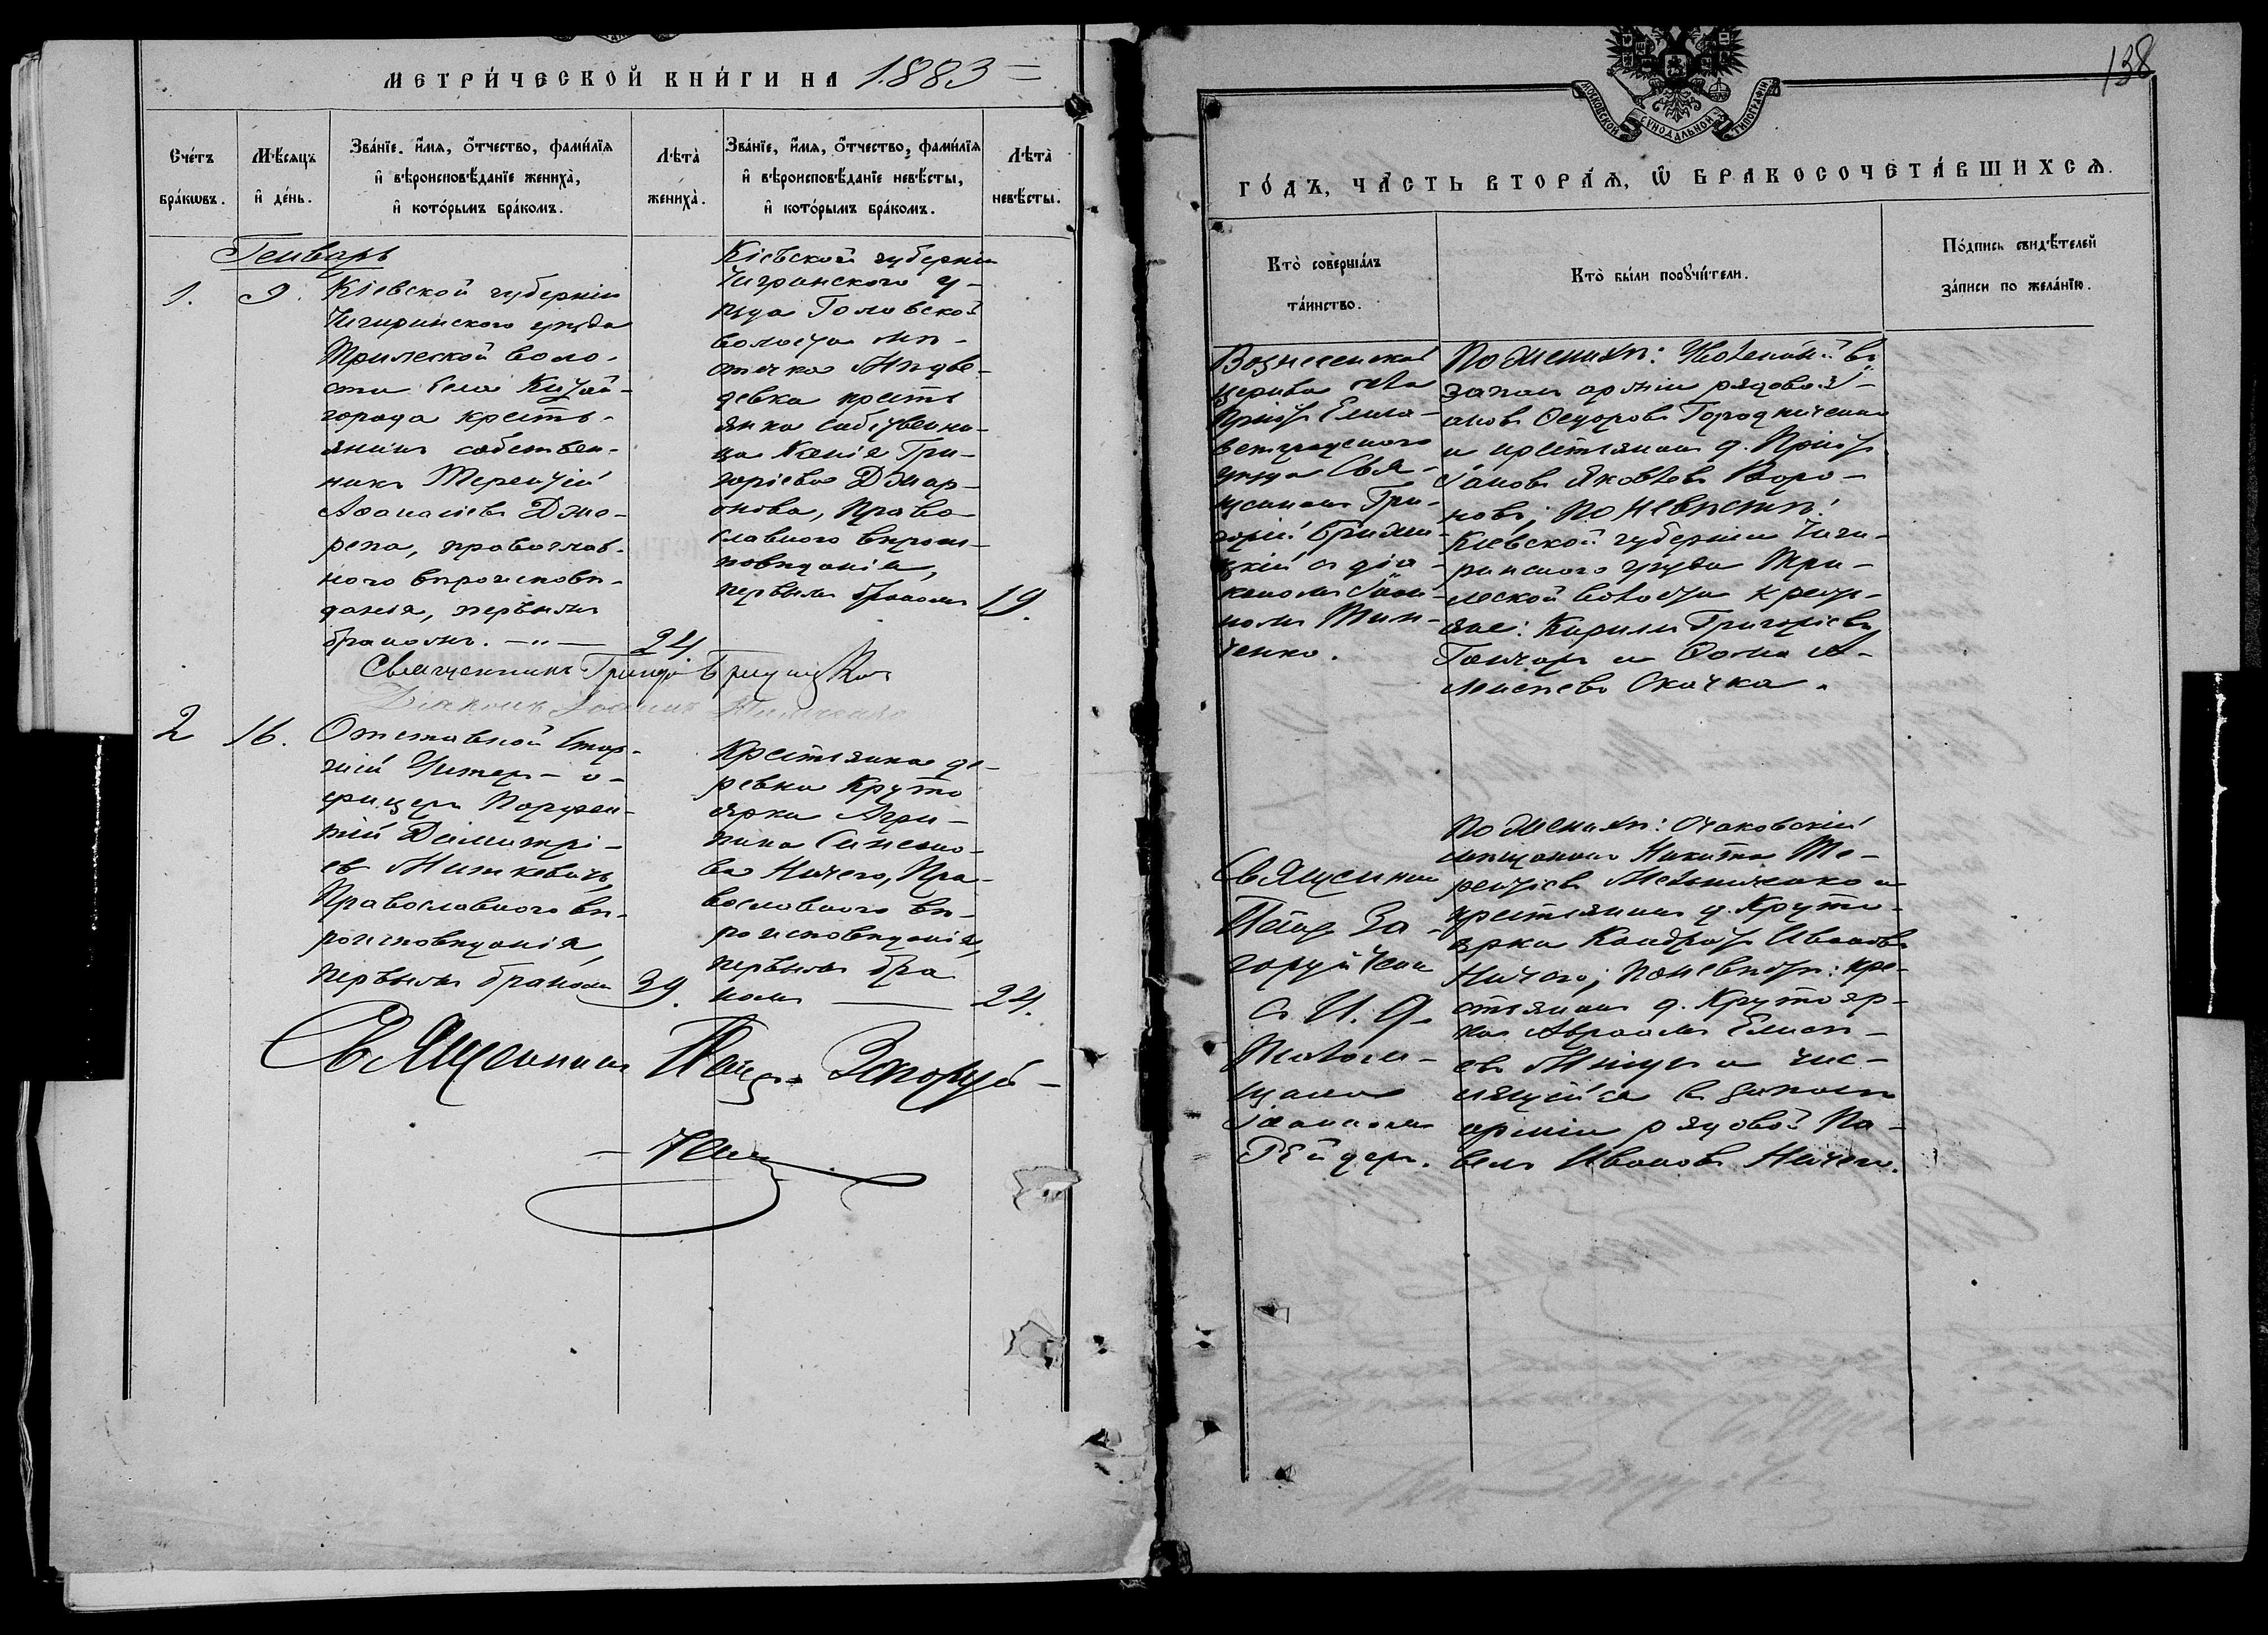 МЕТРИ́ЧЕСКОЙ КНИ́ГИ НА 1883
Сче́тъ бра́кωвъ.
Мѣ́сяцъ и҆ де́нь.
Зва́нїе, и҆́мя, ѻ҆́тчество, фами́лїя и҆ вѣроисповѣ́данїе жениха̀, и҆ кото́рымъ бра́комъ.
Лѣта̀ жениха̀.
Зва́нїе, и҆́мя, ѻ҆́тчество, фами́лїя и҆ вѣроисповѣ́данїе невѣ́сты, и҆ кото́рымъ бра́комъ.
Лѣта̀ невѣ́сты.
Генварь
1.
9.
Кіевской губерніи
Чигиринскаго уѣзда
Трилеской воло-
сти села Китай-
города кресть-
янинъ собствен-
никъ Терентій
Аѳанасіевъ Дмо-
репа, православ-
наго вѣроисповѣ-
данія, первымъ
бракомъ. — " —
24
Кіевской губерніи
Чигринскаго у-
ѣзда Головской
волости мѣ-
стечка Мѣдве-
девка кресть
янка собственни-
ца Ксенія Гри-
горіева
Право-
славнаго вѣроис-
повѣданія,
первымъ бракомъ
19.
Священникъ Григорій
Діаконъ Іоаннъ
2
16.
Отставной стар-
шій Унтеръ-о-
фицеръ Парфен-
тій Димитрі-
евъ Миткевичъ,
Православнаго вѣ-
роисповѣданія,
первымъ бракомъ
39.
Крестьянка де-
ревни Круто
ярки Агри-
пина Симено-
ва Ничего, Пра-
вославнаго вѣ-
роисповѣданія,
первымъ бра
комъ —
24.
Священникъ Петръ Загоруй-
-ченко
138
МОСКОВСКОЙ СѴНОДАЛЬНОЙ ТИПОГРАФІИ
ГО́ДЪ, ЧА́СТЬ ВТОРА́Я, Ѡ҆ БРАКОСОЧЕТА́ВШИХСЯ.
Кто̀ соверша́лъ та́инство.
Кто̀ бы́ли порꙋчи́тели.
По́дпись свидѣ́телей за́писи по жела́нїю.
Вознесенской
церкви села
Пріюта Елиса-
ветградскаго
уѣзда Свя-
щенникъ Гри-
горій
скій съ діа-
кономъ Іоан-
номъ Тим-
ченко.
По женихѣ: въ
запасѣ арміи рядовой І-
аковъ Ѳедоровъ Городниченко
и крестьянинъ д. Пріюта
Іаковъ Яковлевъ Воро-
новъ; по невѣстѣ:
Кіевской губерніи Чиги-
ринскаго уѣзда Три-
леской волости кресть-
яне: Кирилъ Григоріевъ
Гончаръ и Ѳома А-
лексѣевъ Скачка.
Священникъ
Петръ За-
горуйченко
съ И. д.
Псалом-
щика
Іоанномъ
Рейдеръ.
По женихѣ: Очаковскій
мѣщанинъ Никита Те-
рентіевъ Мельниченко и
крестьянинъ д. Круто-
ярки Кондратъ Ивановъ
Ничего; по невѣстѣ: кре-
стьянинъ д. Крутояр-
ки Авраамъ Елисе-
евъ и чис-
лящійся въ запасѣ
арміи рядовой Па-
велъ Ивановъ Ничего.